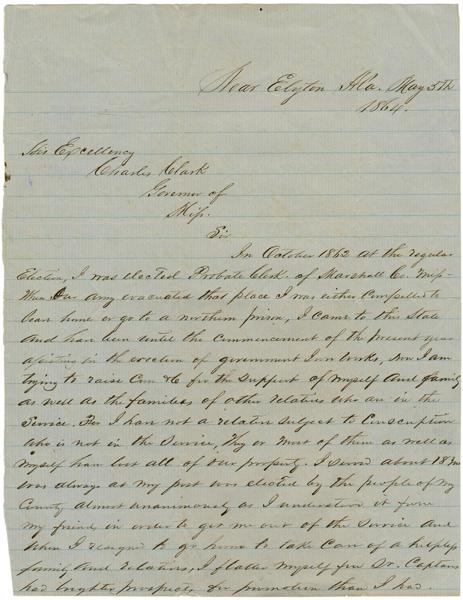 Near Elyton Ala. May 5th
1864.
His Excellency
Charles Clark
Governor of
Miss.
Sir
In October 1862 at the regular
Election, I was elected Probate Clerk of Marshall Co. Miss-
When Our army evacuated that place I was either Compelled to
leav home or go to a northern prison, I came to this State
and hav been until the Commencement of the present year
assisting in the erection of government Iron Works, Now I am
trying to raise Corn &C for the support of myself and family
as well as the families of other relatives who are in the
Service. For I hav not a relative subject to Conscription
who is not in the Service, they or most of them as well as
myself hav lost all of our property. I served about 18 mo
was always at my post was elected by the people of my
County almost unanimously as I understood it from
my friends in order to get me out of the Service and
when I resigned to go home to take Care of a helpless
family and relatives, I flatter myself few Sr. Captains
had brighter prospects for promotion than I had.